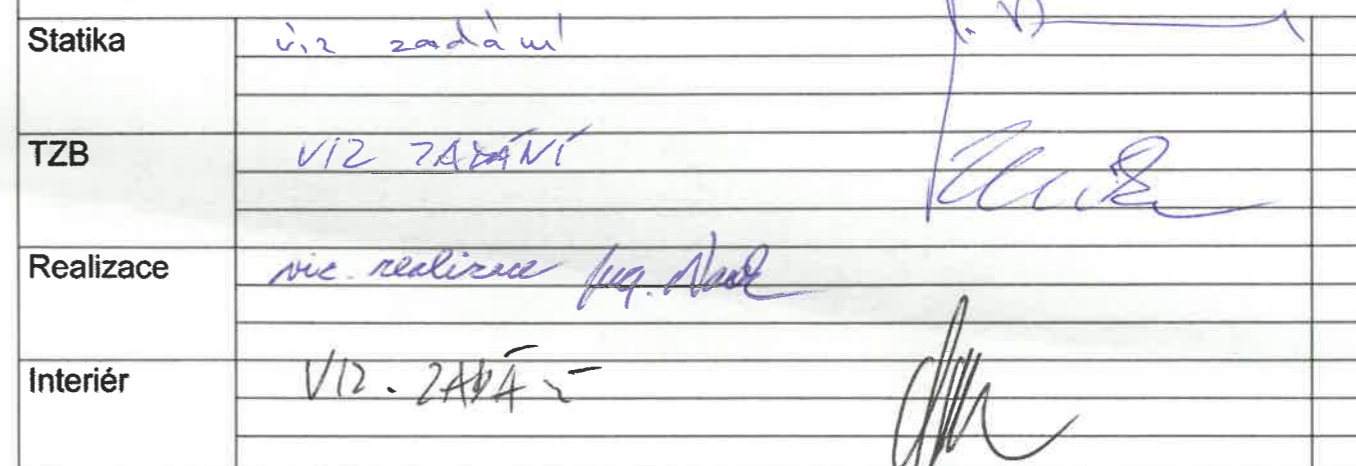 Statika viz zadání
TZB VIZ ZADÁNÍ
Realizace viz. realizace Ing.
Interiér VIZ. ZADÁNÍ